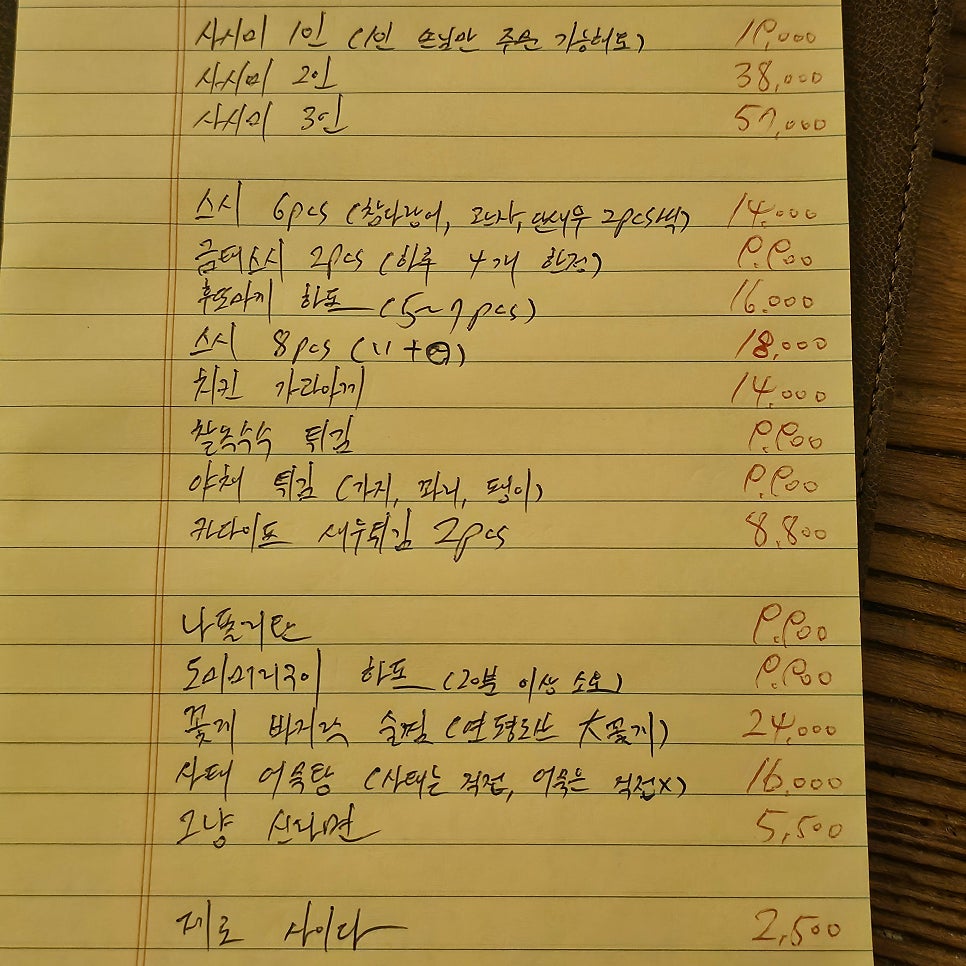 사시미 1인 (1인 손님만 주문 가능해요) 19,000
사시미 2인 38,000
사시미 3인 57,000
스시 6pcs (참다랑어, 관자, 단새우 2pcs씩) 14,000
금태스시 2pcs (하루 4개 한정) 9,900
후또마끼 하프 (5~7pcs) 16,000
스시 8pcs ( 18,000
치킨 가라아게 14,000
찰옥수수 튀김 9,900
야채 튀김 (가지, 꽈리, 팽이) 9,900
카다이프 새우튀김 2pcs 8,800
나폴리탄 9,900
도미머리구이 하프 (20분 이상 소요) 9,900
꽃게 바지락 술찜 (연평도산 大꽃게) 24,000
사태 어묵탕 (사태는 직접, 어묵은 직접x) 16,000
그냥 신라면 5,500
제로 사이다 2,500